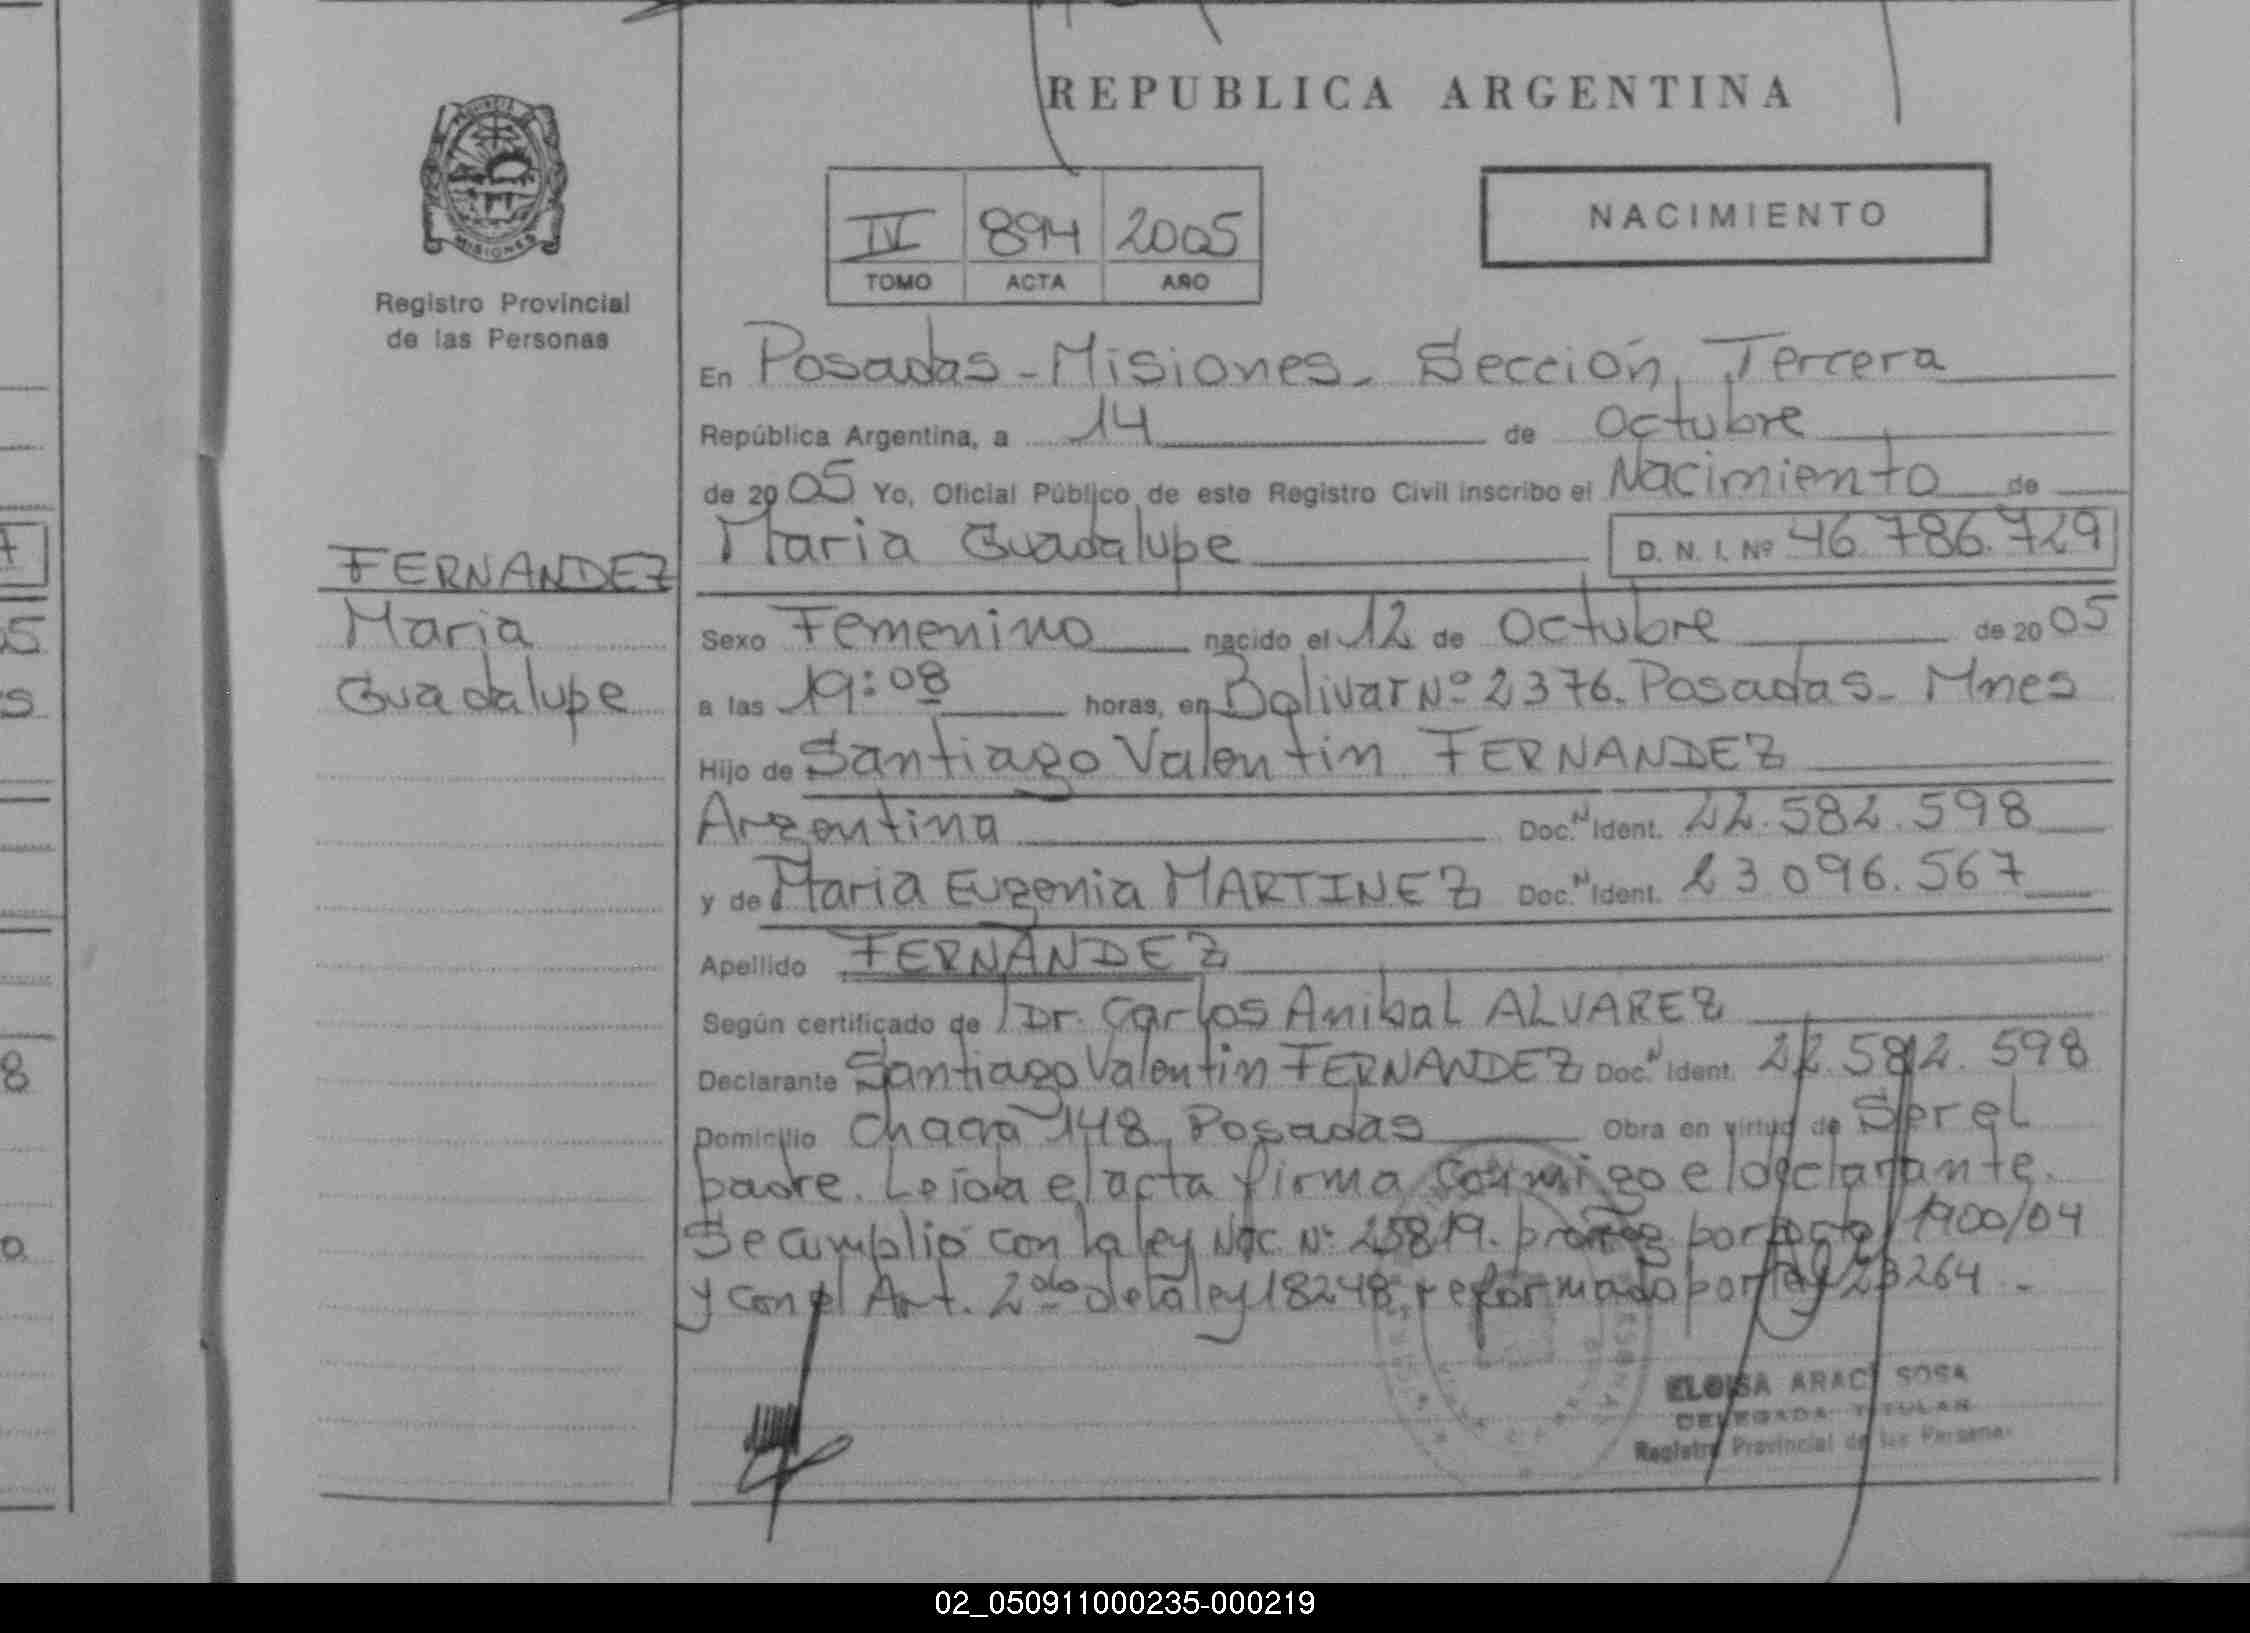 REPUBLICA ARGENTINA
PROVINCIA
MISIONES
Registro Provincial
de las Personas
IV 894 2005
TOMO ACTA AÑO
NACIMIENTO
En Posadas - Misiones. Sección Tercera
República Argentina, a 14 de Octubre
de 2005 Yo, Oficial Público de este Registro Civil inscribo el Nacimiento de
Maria Guadalupe D. N. I. Nº 46.786.729
FERNANDEZ
Maria
Guadalupe
Sexo Femenino nacido el 12 de Octubre de 2005
a las 19:08 horas, en Bolivar Nº 2376. Posadas - Mnes
Hijo de Santiago Valentin FERNANDEZ
Argentina Doc. Ident. 22.582.598
y de Maria Eugenia MARTINEZ Doc. Ident. 23.096.567
Apellido FERNANDEZ
Según certificado de Dr. Carlos Anibal ALVAREZ
Declarante Santiago Valentin FERNANDEZ Doc. Ident. 22.582.598
Domicilio Chacra 148, Posadas Obra en virtud de Ser el
padre. Leída el acta firma conmigo el declarante.
Se cumplió con la ley Nac. Nº 25819. por 1900/04
y con el Art. 2do de la ley 18248, reformado por ley 23264 -
ELOISA ARACI SOSA
DELEGADA TITULAR
Registro Provincial de las Personas
7
05
s
8
o
02_050911000235-000219